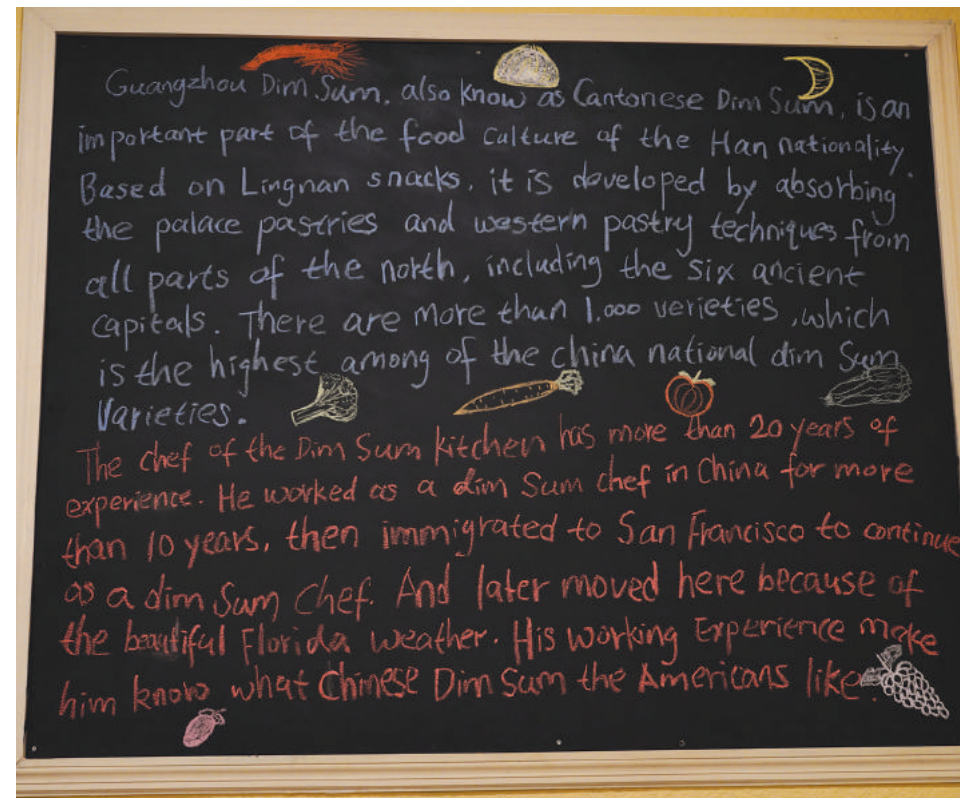 Guangzhou Dim Sum, also know as Cantonese Dim Sum, is an
important part of the food culture of the Han nationality.
Based on Lingnan snacks, it is developed by absorbing
the palace pastries and western pastry techniques from
all parts of the north, including the six ancient
capitals. There are more than 1,000 verieties, which
is the highest among of the china national dim Sum
Varieties.
The chef of the Dim Sum kitchen has more than 20 years of
experience. He worked as a dim Sum chef in China for more
than 10 years, then immigrated to San Francisco to continue
as a dim Sum chef. And later moved here because of
the beautiful Florida weather. His working Experience make
him know what Chinese Dim Sum the Americans like.